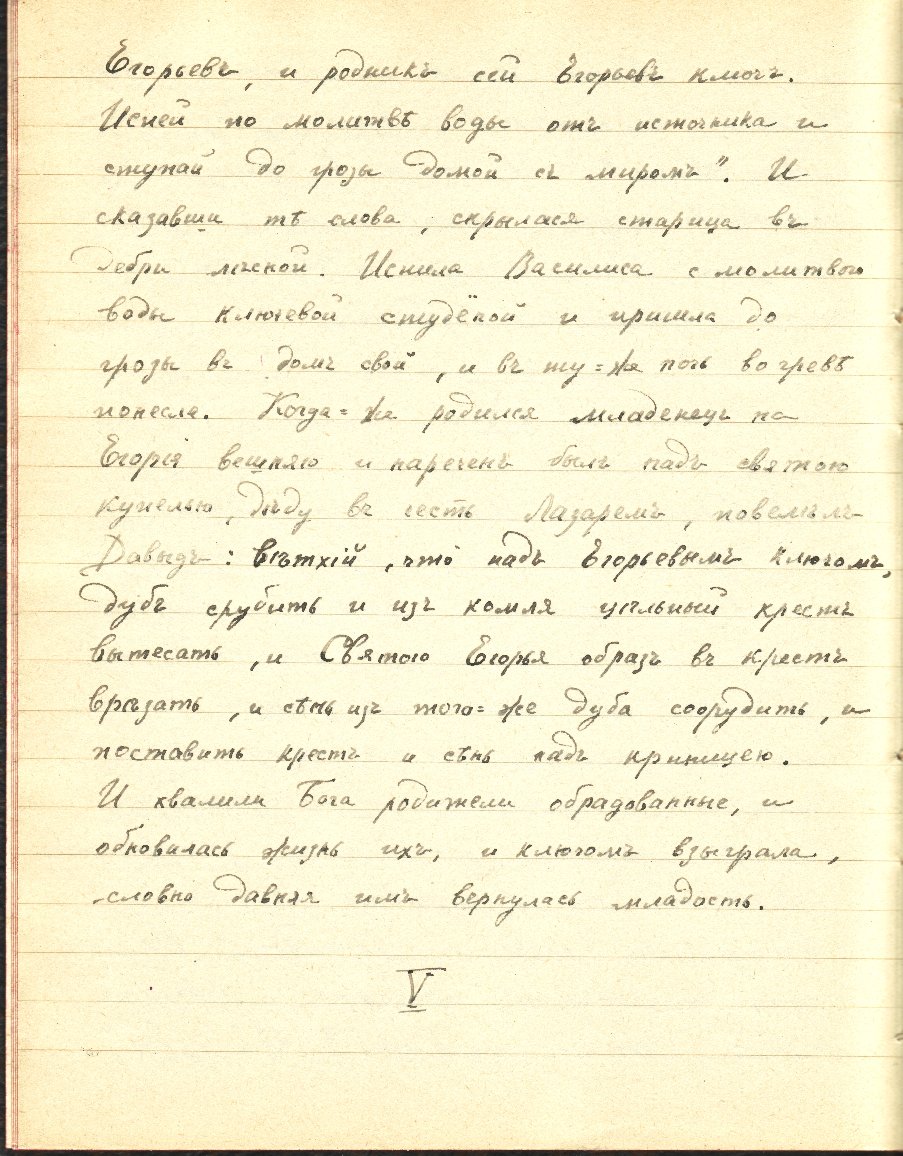 Егорьевъ, и родникъ сей Егорьевъ ключъ.
Испей по молитвѣ воды отъ источника и
ступай до грозы домой съ миромъ". И
сказавши тѣ слова, скрылася старица въ
дебри лѣсной. Испила Василиса с молитвою
воды ключевой студёной и пришла до
грозы въ домъ свой, и въ ту=же ночь во чревѣ
понесла. Когда=же родился младенецъ на
Егорія вешняго и нареченъ былъ надъ святою
купелью, дѣду въ честь Лазаремъ, повелѣлъ
Давыдъ: вѣтхій, что надъ Егорьевымъ ключомъ,
дубъ срубить и изъ комля цѣльный крестъ
вытесать, и Святого Егорья образъ въ крестъ
врѣзать, и сѣнь изъ того=же дуба соорудить, и
поставить крестъ и сѣнь надъ криницею.
И хвалили Бога родители обрадованные, и
обновилась жизнь ихъ, и ключомъ взыграла,
словно давняя имъ вернулась младость.
V